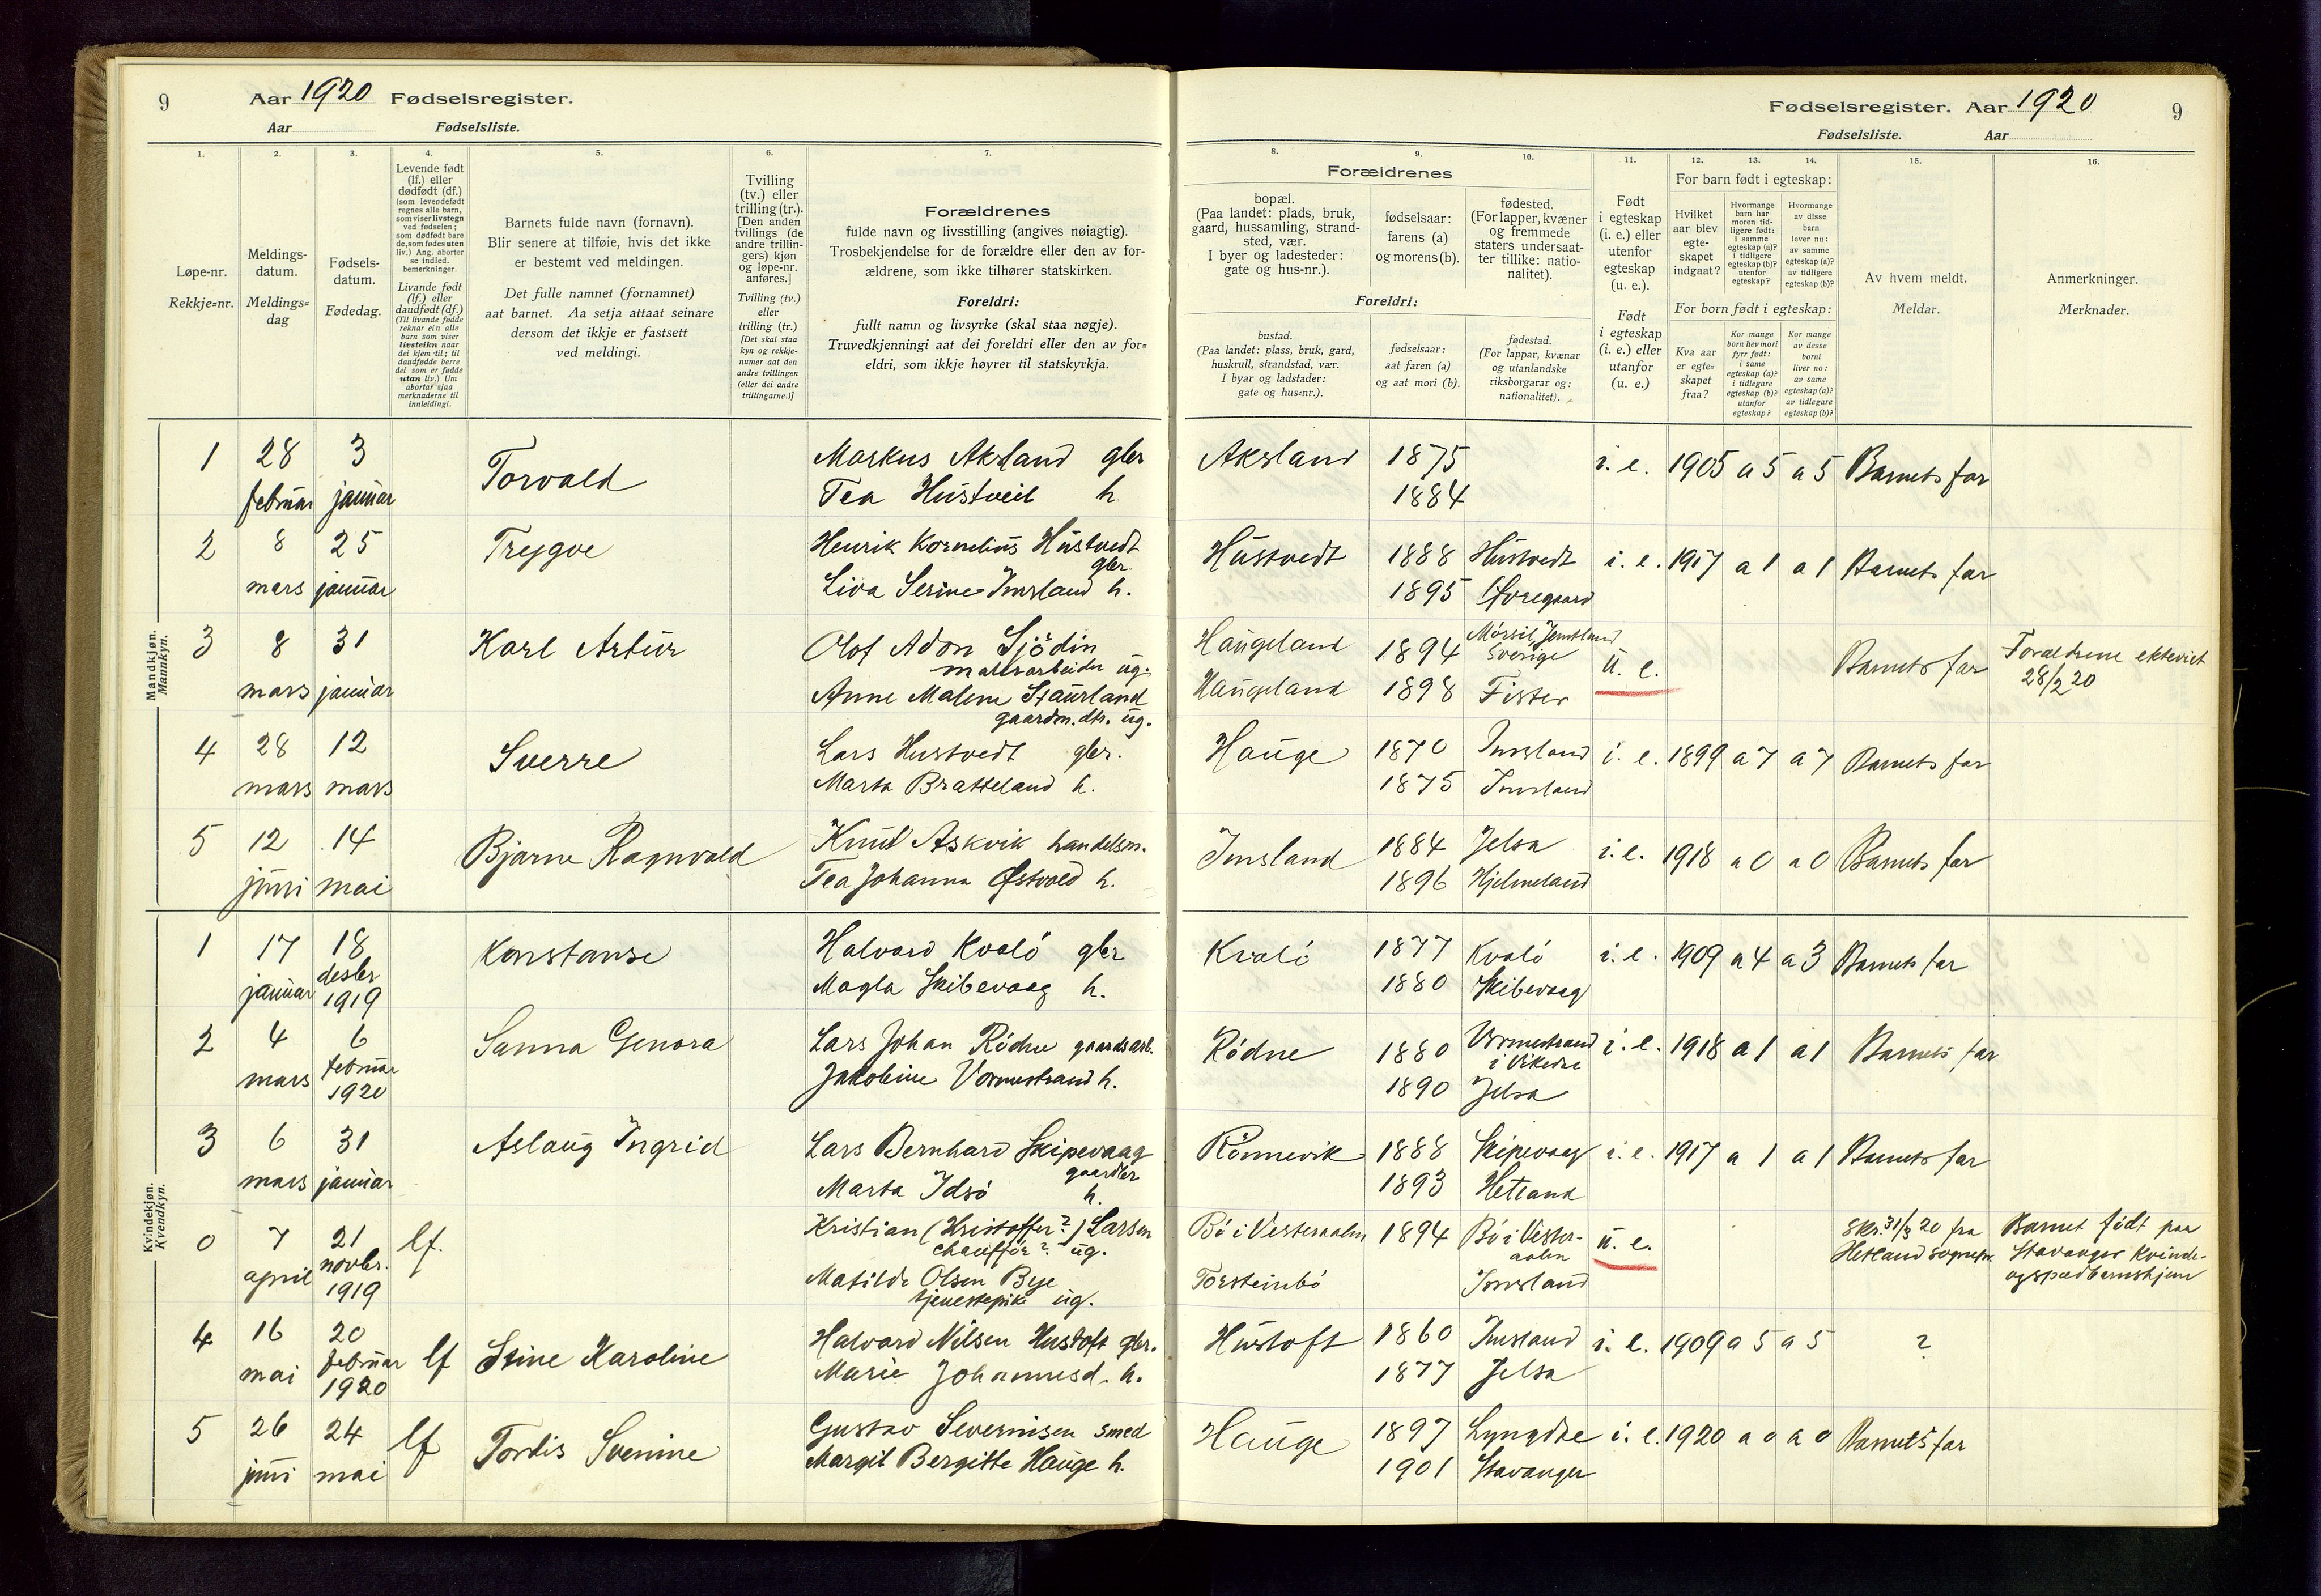 9 Aar 1920 Fødselsregister.
Aar Fødselsliste.
Fødselsregister. Aar 1920 9
Fødselsliste. Aar
1. 2. 3. 4. 5. 6. 7.
Løpe-nr.
Rekkje=nr.
Meldings-
datum.
Meldings=
dag
Fødsels-
datum.
Fødedag.
Levende født
(lf.) eller
dødfødt (df.)
(som levendefødt
regnes alle barn,
som viser livstegn
ved fødselen;
som dødfødt bare
de, som fødes uten
liv.) Ang. aborter
se indled.
bemerkninger.
Livande født
(lf.) eller
daudfødt (df.)
(Til livande fødde
reknar ein alle
barn som viser
livsteikn naar
dei kjem til; til
daudfødde berre
dei som er fødde
utan liv.) Um
abortar sjaa
merknaderne til
innleidingi.
Barnets fulde navn (fornavn).
Blir senere at tilføie, hvis det ikke
er bestemt ved meldingen.
Det fulle namnet (fornamnet)
aat barnet. Aa setja attaat seinare
dersom det ikkje er fastsett
ved meldingi.
Tvilling
(tv.) eller
trilling (tr.).
[Den anden
tvillings (de
andre trillin-
gers) kjøn
og løpe-nr.
anføres.]
Tvilling (tv.)
eller
trilling (tr.)
[Det skal staa
kyn og rekkje-
numer aat den
andre tvillingen
(eller dei andre
trillingarne.)]
Forældrenes
fulde navn og livsstilling (angives nøiagtig).
Trosbekjendelse for de forældre eller den av for-
ældrene, som ikke tilhører statskirken.
Foreldri:
fullt namn og livsyrke (skal staa nøgje).
Truvedkjenningi aat dei foreldri eller den av for=
eldri, som ikkje høyrer til statskyrkja.
8. 9. 10. 11. 12. 13. 14. 15. 16.
Forældrenes
bopæl.
(Paa landet: plads, bruk,
gaard, hussamling, strand-
sted, vær.
I byer og ladesteder:
gate og hus-nr.).
fødselsaar:
farens (a)
og morens (b).
fødested.
(For lapper, kvæner
og fremmede
staters undersaat-
ter tillike: natio-
nalitet).
Foreldri:
bustad.
(Paa landet: plass, bruk, gard,
huskrull, strandstad, vær.
I byar og ladstader:
gate og hus=nr.).
fødselsaar:
aat faren (a)
og aat mori (b).
fødestad.
(For lappar, kvænar
og utanlandske
riksborgarar og:
nationalitet).
Født
i egteskap
(i. e.) eller
utenfor
egteskap
(u. e.).
Født
i egteskap
(i. e.) eller
utanfor
(u. e.)
For barn født i egteskap:
Hvilket
aar blev
egte-
skapet
indgaat?
Hvormange
barn har
moren tid-
ligere født:
i samme
egteskap (a)?
i tidligere
egteskap (b)?
utenfor
egteskap?
Hvormange
av disse
barn
lever nu:
av samme
egteskap (a)?
av tidligere
egteskap (b)?
For born født i egteskap:
Kva aar
er egte=
skapet
fraa?
Kor mange
born hev mori
fyrr født:
i same
egteskap (a)?
i tidlegare
egteskap (b)?
utanfor
egteskap?
Kor mange
av desse
borni
liver no:
av same
egteskap (a)?
av tidlegare
egteskap (b)?
Av hvem meldt.
Meldar.
Anmerkninger.
Merknader.
Mandkjøn.
Mannkyn.
1 28 februar 3 januar Torvald Markus Aksland gbr Aksland 1875 i. e. 1905 a 5 a 5 Barnets far
Tea Hustveit h. 1884
2 8 mars 25 januar Trygve Henrik Kornelius Hustvedt gbr Hustvedt 1888 Hustvedt i. e. 1917 a 1 a 1 Barnets far
Liva Serine Imsland h. 1895 Øvregaard
3 8 mars 31 januar Karl Artur Olof Adon Sjödin Haugeland 1894 Mörsil, Jemtland Sverige u. e. Barnets far Forældrene ekteviet
ug. 28/2 20
Anne Malene Staurland Haugeland 1898 Fister
gaardm. dtr. ug.
4 28 mars 12 mars Sverre Lars Hustvedt gbr. Hauge 1870 Imsland i. e. 1899 a 7 a 7 Barnets far
Marta Bratteland h. 1875 Imsland
5 12 juni 14 mai Bjarne Ragnvald Knut Askvik handelsm. Imsland 1884 Jelsa i. e. 1918 a 0 a 0 Barnets far
Tea Johanna Østvold h. 1896 Hjelmeland
Kvindekjøn.
Kvendkyn.
1 17 januar 18 desbr 1919 Konstanse Halvard Kvalö gbr Kvalö 1877 Kvalö i. e. 1909 a 4 a 3 Barnets far
Magla Skibevaag h. 1880 Skibevaag
2 4 mars 6 februar 1920 Sanna Genora Lars Johan Rödne gaardsarb. Rödne 1880 Vormestrand i Vikedre i. e. 1918 a 1 a 1 Barnets far
Jakobine Vormestrand h. 1890 Jelsa
3 6 mars 31 januar Aslaug Ingrid Lars Bernhard Skipevaag gaardbr Rönnevik 1888 Skipevaag i. e. 1917 a 1 a 1 Barnets far
Marta Idsö h. 1893 Hetland
0 7 april 21 novbr. 1919 lf. Kristian (Kristoffer?) Larsen Bö i Vesteraalen 1894 Bö i Vester-aalen u. e. Skr. 31/3 20 fra Barnet født paa
chaufför? ug. Hetland sognepr. Stavanger kvinde-
Matilde Olsen Bye Torsteinbö Imsland og spædbarnshjem
tjenestepike ug.
4 16 mai 20 februar 1920 lf Stine Karoline Halvard Nilsen Hustoft gbr. Hustoft 1860 Imsland i. e. 1909 a 5 a 5 ?
Marie Johannesd. h. 1877 Jelsa
5 26 juni 24 mai lf Tordis Svenine Gustav Severinsen smed Hauge 1897 Lyngdal i. e. 1920 a 0 a 0 Barnets far
Margit Bergitte Hauge h. 1901 Stavanger